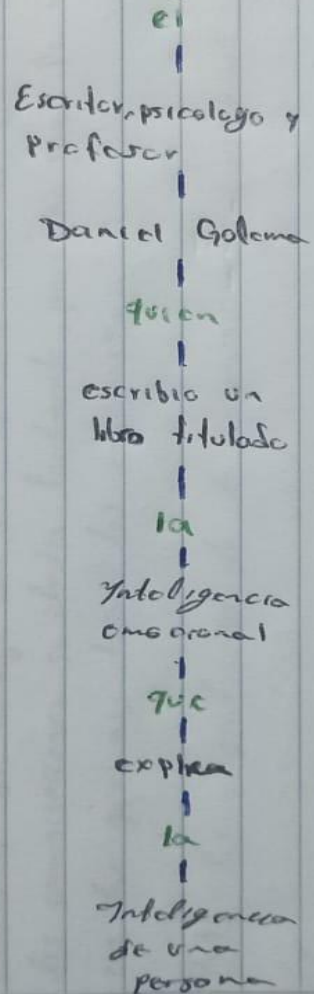 el
Escritor, psicologo y
profesor
Daniel Golema
quien
escribio un
libro titulado
la
Inteligencia
emocional
que
explica
la
Inteligencia
de una
persona